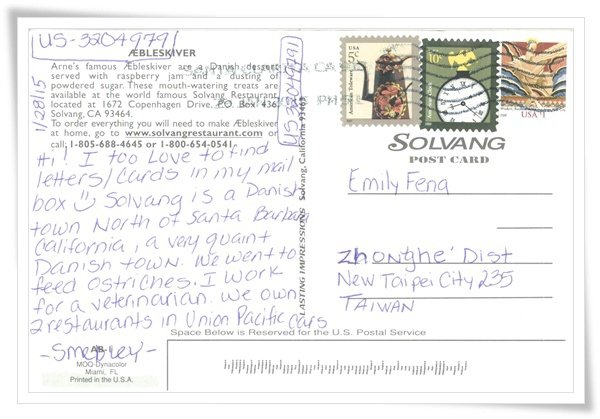 US-32049791
ÆBLESKIVER
Arne's famous Æbleskiver are a Danish dessert
served with raspberry jam and a dusting of
powdered sugar. These mouth-watering treats are
available at the world famous Solvang Restaurant,
located at 1672 Copenhagen Drive, P.O. Box 436,
Solvang, CA 93464.
To order everything you will need to make Æbleskiver
at home, go to www.solvangrestaurant.com or
call 1-805-688-4645 or 1-800-654-0541.
1/28/15
US-32049791
Hi! I too Love to find
letters/cards in my mail
box Solvang is a Danish
town North of Santa Barbara
California, a very quaint
Danish town. We went to
feed ostriches. I work
for a veterinarian. We own
2 restaurants in Union Pacific cars
AB-
MOQ-Dynacolor
Miami, FL
Printed in the U.S.A.
LASTING IMPRESSIONS Solvang, California 93463
USA
5c
American Toleware
USA
10c
USA
SOLVANG
POST CARD
Emily Feng
Zhonghe' Dist
New Taipei City 235
TAIWAN
Space Below is Reserved for the U.S. Postal Service